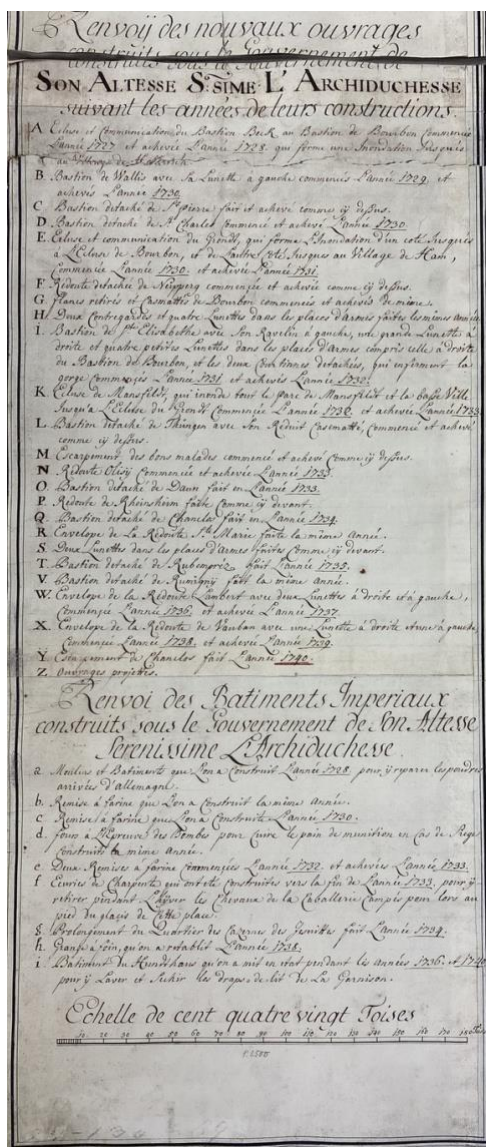 Renvoij des nouvaux ouvrages
construits sous le Gouvernement de
SON ALTESSE S:SIME L'ARCHIDUCHESSE
suivant les années de leurs constructions.
A Ecluse et Communication du Bastion Beck au Bastion de Bourbon Commencée
L'année 1727 et achevée L'année 1728 qui forme une Inondation Jusques
au
B. Bastion de Wallis avec Sa Lunette a gauche commencés L'année 1729. et
achevés L'année 1730.
C Bastion detaché de St. pierre fait et achevé comme ij desus.
D. Bastion detaché de St. Charles Commencé et achevé L'année 1730.
E. Ecluse et communication du Grondt, qui forme L'Inondation d'un coté Jusqués
à L'Ecluse de Bourbon, et de L'autre Coté Jusques au Village de Ham,
Commencée L'année 1730. et achevée L'année 1731.
F. Redoute detachée de Neüpperg commencée et achevée comme ij desus.
G. flancs retirés et Casmattes de Bourbon commencés et achevés de même.
H. Deux Contregardes et quatre Lunettes dans les places d'armes faites les mêmes années
I. Bastion de Ste. Elisabethe avec Son Ravelin à gauche, une grande Lunette à
droite et quatre petites Lunettes dans les places d'Armes compris celle à droite
du Bastion du Bourbon, et les deux Courtinnes detachés, qui enferment la
gorge Commencés L'année 1731. et achevés L'année 1732.
K Ecluse de Mansfeldt, qui inonde tout le parc de Mansfeldt et la basse Ville
Jusqu'a L'Ecluse du Grondt Commencée L'année 1732. et achevée L'année 1733.
L. Bastion detaché de Thüngen avec Son Reduit Casematté, Commencé et achevé
comme ij desus.
M Escarpement des bons malades commencé et achevé Comme ij desus.
N. Redoute Olisij Commencée et achevée L'année 1733.
O. Bastion detaché de Daun fait en L'année 1733.
P. Redoute de Rheinsheim faite Comme ij devant.
Q. Bastion detaché de Chanclos fait en L'année 1734.
R. Envelope de La Redoute Ste. Marie faite la même année.
S. Deux Lunettes dans les places d'Armes faittes Comme ij devant.
T. Bastion detaché de Rubempréz fait L'année 1735.
V. Bastion detaché de Rumignÿ fait la même année.
W. Envelope de la Redoute Lambert avec deux Lunettes à droite et à gauche,
Commencée L'année 1736. et achevée L'année 1737.
X. Envelope de la Redoute de Vauban avec une Lunette à droite et une à gauche
Commencée L'année 1738. et achevée L'année 1739.
Y. Escarpement de Chanclos fait L'année 1740.
Z. ouvrages projettés.
Renvoi des Batiments Imperiaux
construits sous le Gouvernement de Son Altesse
Serenissime L'Archiduchesse.
a. Moulins et Batiments que L'on a Construit L'année 1728. pour ÿ reparer les poudres
arrivées d'allemagne.
b. Remise à farine que L'on a Construit la même année.
c. Remise à farine que L'on a Construite L'année 1730.
d. fours à L'Epreuve des Bombes pour Cuire le pain de munition en Cas de Siege
Construits la même année.
e. Deux Remises à farine commencées L'année 1732. et achevées L'année 1733.
f Ecuries de Charpente qui ont eté Construites vers la fin de L'année 1733. pour ÿ
retirer pendant L'hÿver les Chevaux de la Caballerie Campés pour lors au
pied du glacis de Cette place.
g. Prolongement du Quartier des Cazernes des Jesuites fait L'année 1734.
h. Grange à foin, qu'on a retablit L'année 1738.
i. Batiment du Hundshaus qu'on a mit en état pendant les années 1736. et 1740
pour ÿ Laver et Secher les draps de lit de La Garnison.
Echelle de cent quatre vingt Toises
10 20 30 40 50 60 70 80 90 100 110 120 130 140 150 160 170 180 Toises
1:2500